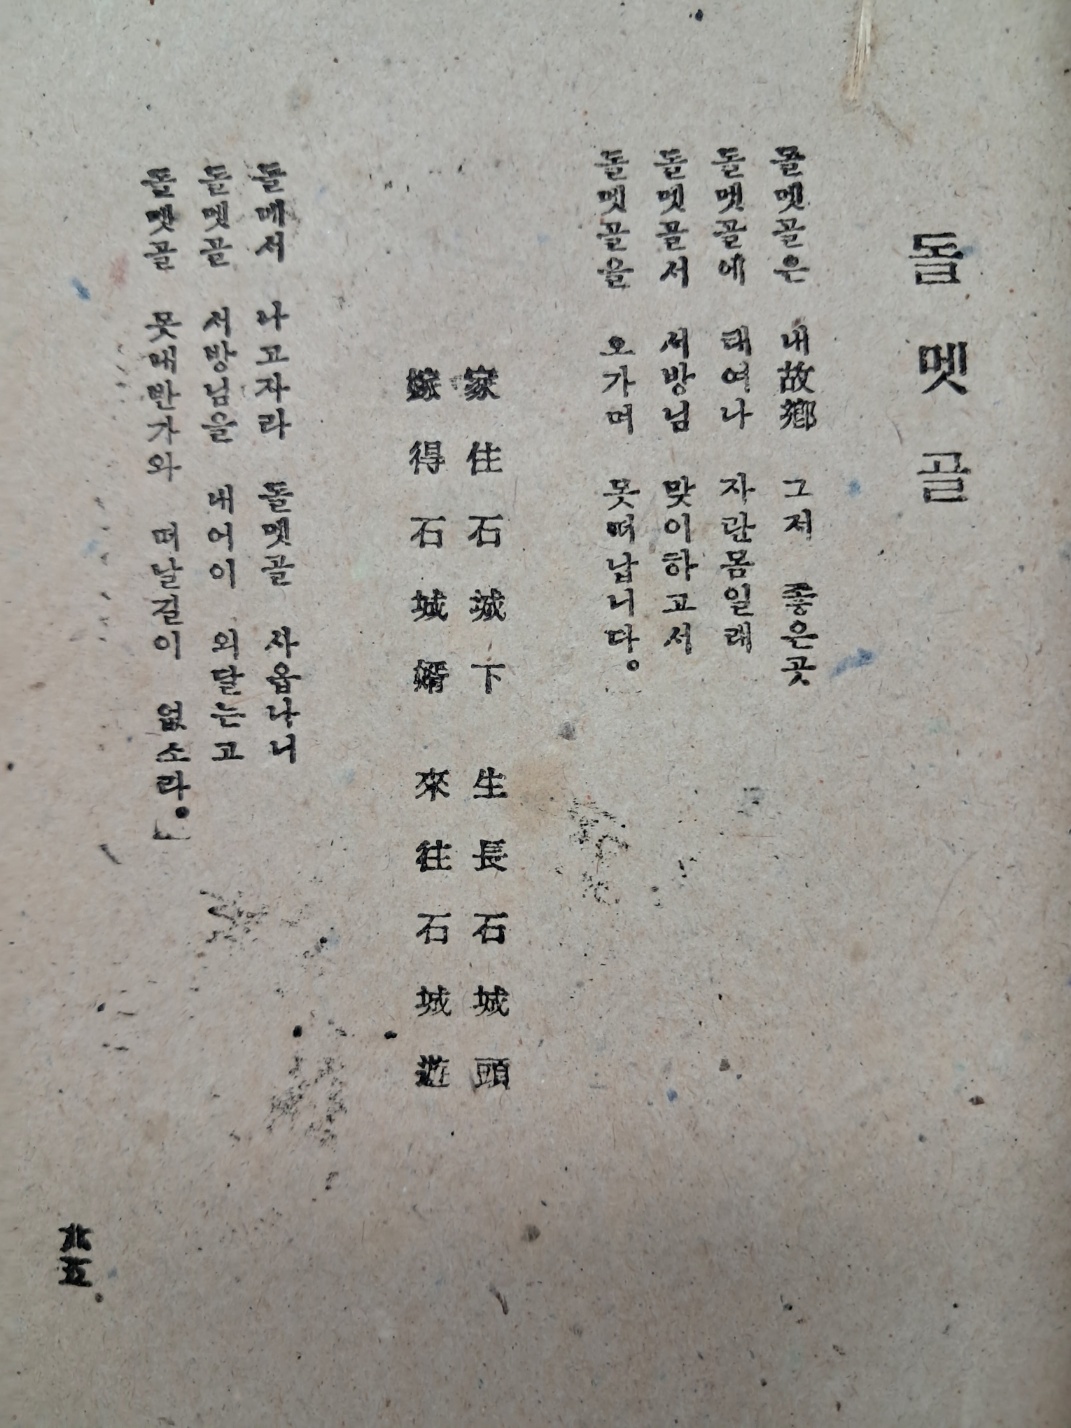 돌멧골
돌멧골은 내故鄕 그저 좋은곳
돌멧골에 태여나 자란몸일래
돌멧골서 서방님 맞이하고서
돌멧골을 오가며 못떠납니다。
家住石城下 生長石城頭
嫁得石城婿 來往石城遊
돌메서 나고자라 돌멧골 사옵나니
돌멧골 서방님을 내어이 외달는고
돌멧골 못애반가와 떠날길이 없소라。」
九五